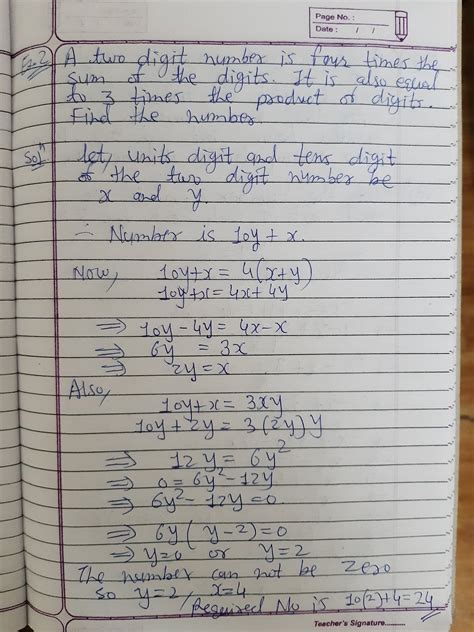 Page No. :
Date : / /
Ex. 2 A two digit number is four times the
sum of the digits. It is also equal
to 3 times the product of digits.
Find the number.
Solⁿ let, units digit and tens digit
of the two digit number be
x and y.
∴ Number is 10y + x.
Now, 10y+x = 4(x+y)
10y+x = 4x+4y
⇒ 10y-4y = 4x-x
⇒ 6y = 3x
⇒ 2y = x
Also,
10y+x = 3xy
10y + 2y = 3(2y)y
⇒ 12y = 6y²
⇒ 0 = 6y²-12y
⇒ 6y²-12y = 0.
⇒ 6y(y-2) = 0
⇒ y=0 or y=2
The number can not be zero
So y=2, x=4
Required No is 10(2)+4=24
Teacher's Signature..........